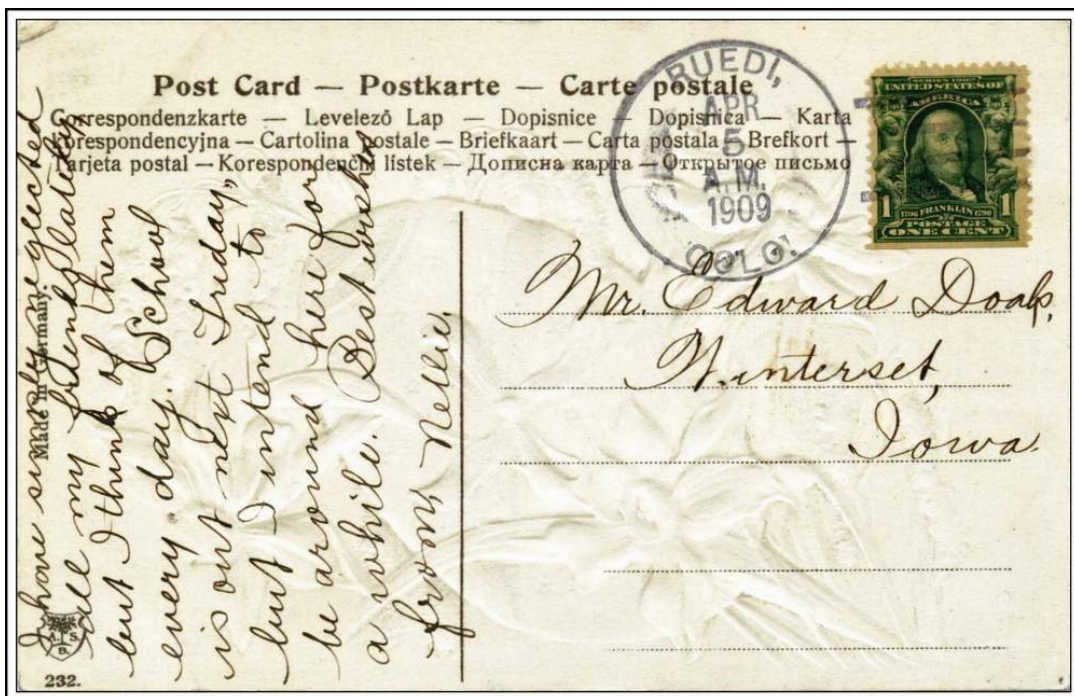 Post Card — Postkarte — Carte postale
Correspondenzkarte — Levelező Lap — Dopisnice — Dopisnica — Karta
korespondencyjna — Cartolina postale — Briefkaart — Carta postala — Brefkort —
Tarjeta postal — Korespondenčni listek — Дописна карта — Открытое письмо
RUEDI,
APR
5
A.M.
1909
COLO.
SERIES 1902
UNITED STATES OF
AMERICA
1 1
1706 FRANKLIN 1790
POSTAGE
ONE CENT
Mr. Edward Doak,
Winterset,
Iowa.
I have surely neglected
all my friends lately,
but I think of them
every day. School
is out next Friday,
but I intend to
be around here for
a while. Best wishes
from, Nellie.
Made in Germany.
A. S.
B.
232.